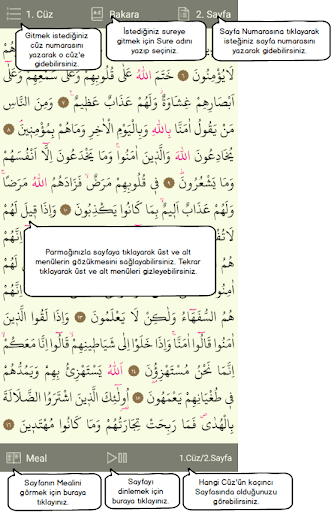 1. Cüz
Bakara
2. Sayfa
Gitmek istediğiniz
cüz numarasını
yazarak o cüz'e
gidebilirsiniz.
İstediğiniz sureye
gitmek için Sure adını
yazıp seçiniz.
Sayfa Numarasına tıklayarak
isteğiniz sayfa numarasını
yazarak gidebilirsiniz.
لَا يُؤْمِنُونَ ﴿٦﴾ خَتَمَ اللّٰهُ عَلٰى قُلُوبِهِمْ وَعَلٰى سَمْعِهِمْ وَعَلٰٓى
اَبْصَارِهِمْ غِشَاوَةٌ وَلَهُمْ عَذَابٌ عَظِيمٌ ﴿٧﴾ وَمِنَ النَّاسِ
مَنْ يَقُولُ اٰمَنَّا بِاللّٰهِ وَبِالْيَوْمِ الْاٰخِرِ وَمَاهُمْ بِمُؤْمِنِينَ ﴿٨﴾
يُخَادِعُونَ اللّٰهَ وَالَّذِينَ اٰمَنُوا وَمَا يَخْدَعُونَ اِلَّٓا اَنْفُسَهُمْ
وَمَا يَشْعُرُونَ ﴿٩﴾ فِي قُلُوبِهِمْ مَرَضٌ فَزَادَهُمُ اللّٰهُ مَرَضًا
وَلَهُمْ عَذَابٌ اَلِيمٌ بِمَا كَانُوا يَكْذِبُونَ ﴿١٠﴾ وَاِذَا قِيلَ لَهُمْ
Parmağınızla sayfaya tıklayarak üst ve alt
menülerin gözükmesini sağlayabilirsiniz. Tekrar
tıklayarak üst ve alt menüleri gizleyebilirsiniz.
هُمُ السُّفَهَٓاءُ وَلٰكِنْ لَا يَعْلَمُونَ ﴿١٣﴾ وَاِذَا لَقُوا الَّذِينَ
اٰمَنُوا قَالُٓوا اٰمَنَّا وَاِذَا خَلَوْا اِلٰى شَيَاطِينِهِمْ قَالُٓوا اِنَّا مَعَكُمْ
اِنَّمَا نَحْنُ مُسْتَهْزِؤُنَ ﴿١٤﴾ اَللّٰهُ يَسْتَهْزِئُ بِهِمْ وَيَمُدُّهُمْ
فِي طُغْيَانِهِمْ يَعْمَهُونَ ﴿١٥﴾ اُولٰٓئِكَ الَّذِينَ اشْتَرَوُا الضَّلَالَةَ
بِالْهُدٰى فَمَا رَبِحَتْ تِجَارَتُهُمْ وَمَا كَانُوا مُهْتَدِينَ ﴿١٦﴾
Meal
1.Cüz/2.Sayfa
Sayfanın Mealini
görmek için buraya
tıklayınız.
Sayfayı
dinlemek için
buraya tıklayınız.
Hangi Cüz'ün kaçıncı
Sayfasında olduğunuzu
görebilirsiniz.